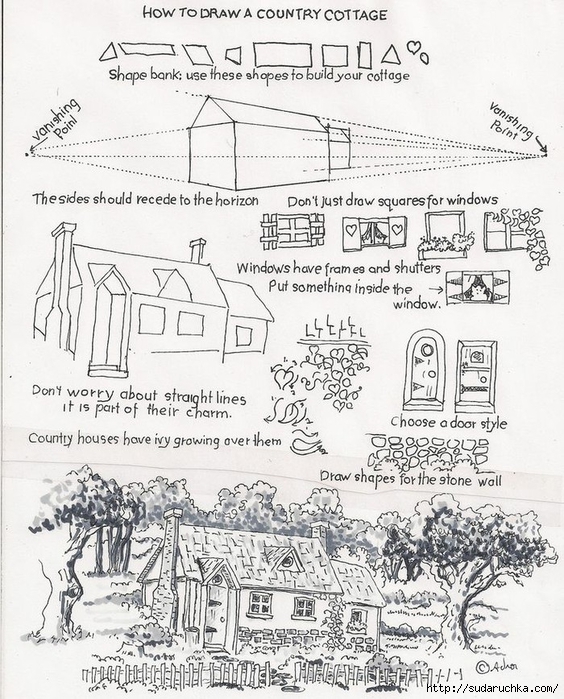 HOW TO DRAW A COUNTRY COTTAGE
Shape bank: use these shapes to build your cottage
vanishing
Point
vanishing
Point
The sides should recede to the horizon
Don't just draw squares for windows
Windows have frames and shutters
Put something inside the
window.
Don't worry about straight lines
it is part of their charm.
Choose a door style
Country houses have ivy growing over them
Draw shapes for the stone wall
©
http://sudaruchka.com/